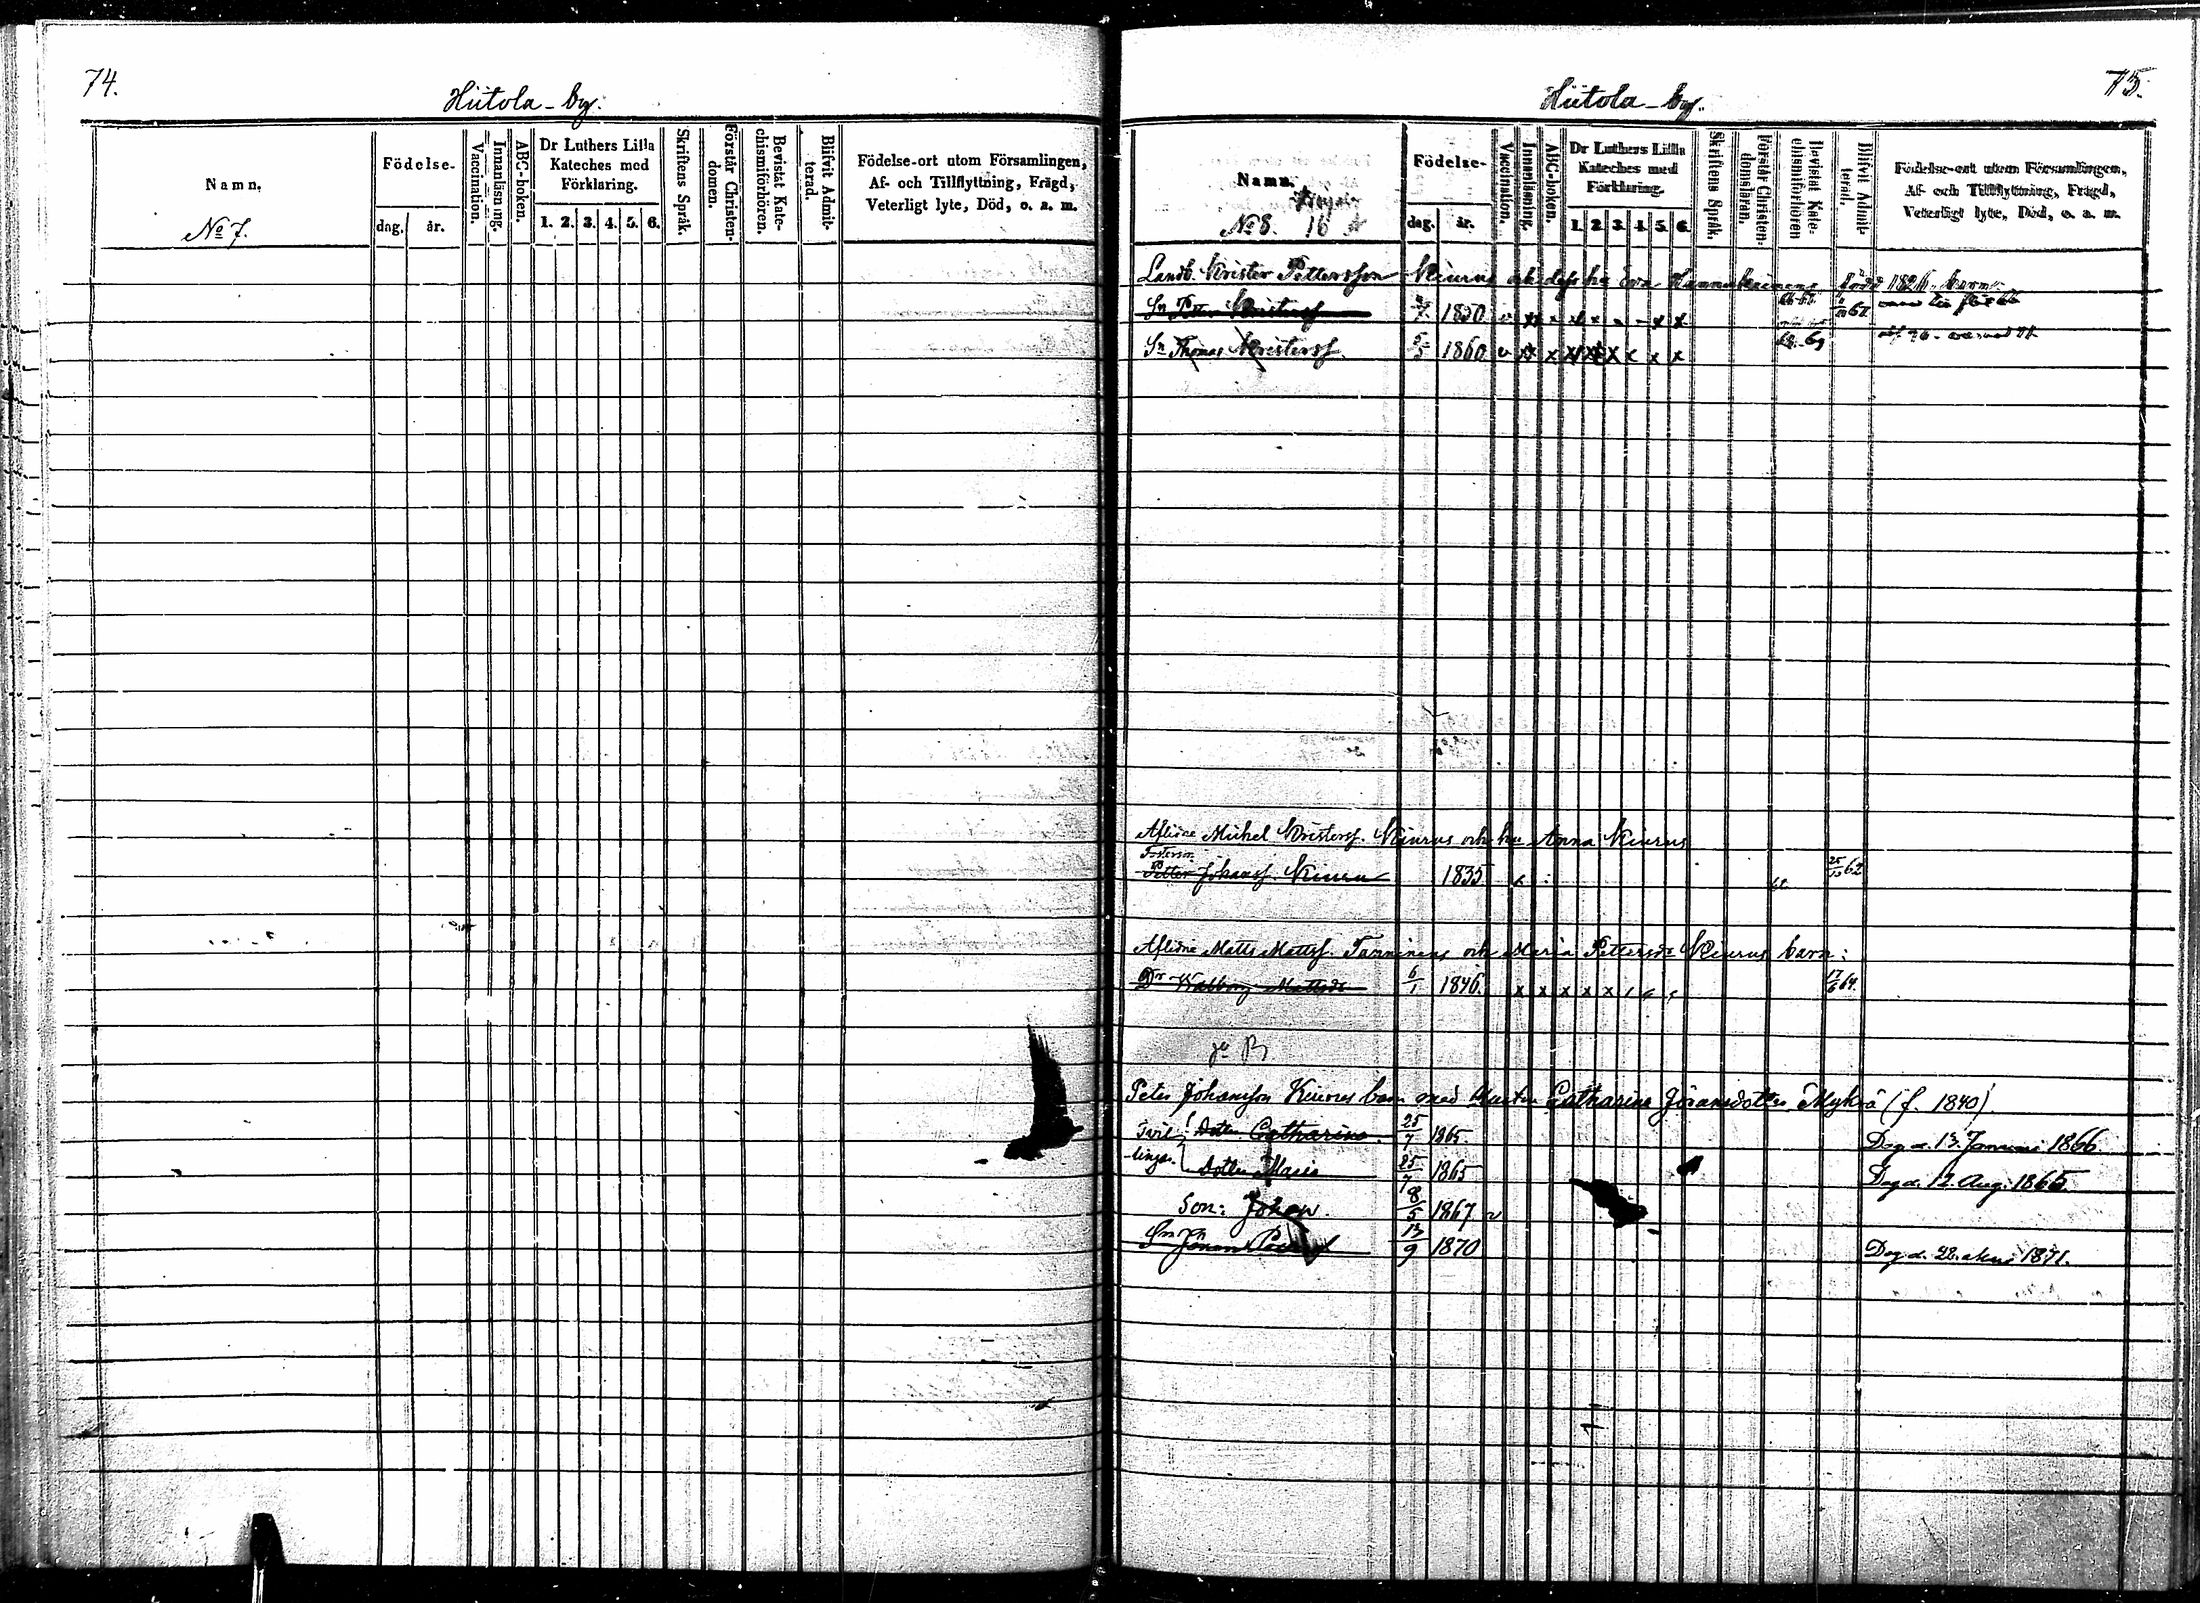 74.
Hiitola-by.
Namn.
No 7.
Födelse-
dag.
år.
Vaccination.
Innanläsning.
ABC-boken.
Dr Luthers Lilla
Kateches med
Förklaring.
1. 2. 3. 4. 5. 6.
Skriftens Språk.
Förstår Christen-
domen.
Bevistat Kate-
chismiförhören.
Blifvit Admit-
terad.
Födelse-ort utom Församlingen,
Af- och Tillflyttning, Frägd,
Veterligt lyte, Död, o. a. m.
75.
Hiitola-by.
Namn.
No 8. 16
Födelse-
dag.
år.
Vaccination.
Innanläsning.
ABC-boken.
Dr Luthers Lilla
Kateches med
Förklaring.
1. 2. 3. 4. 5. 6.
Skriftens Språk.
Förstår Christen-
domsläran.
Bevistat Kate-
chismiförhören
Blifvit Admit-
terad.
Födelse-ort utom Församlingen,
Af- och Tillflyttning, Frägd,
Veterligt lyte, Död, o. a. m.
Landb. Krister Pettersson Kiurus och dess hu Eva född 1826. barn:
Sn Peter Kristerss 1850 v x x x x x x 67
Sn Thomas Kristerss 1860 v x x x x x x x x 68-69
Aflidne Michel Kristerss. Kiurus och hu Anna Kiurus
Fosterson
Petter Johanss. Kiuru 1835 x 25/10 62
Aflidne Matts Mattss. Tanninens och Maria Pettersdr Kiurus barn:
Dr Walborg Mattsdr 6/1 1846. x x x x x 17/6 64.
Peter Johansson Kiurus barn med hustru Catharina Jöransdotter Myhrä (f. 1840)
Tvil- Dotter Catharina. 25/7 1865. Dog d. 13. Januari 1866.
lingar. Dotter Maria 25/7 1865 Dog d. 12. Aug. 1865.
Son: Johan. 8/5 1867 v
Sn Jöran 13/9 1870 Dog d. 28. 1871.